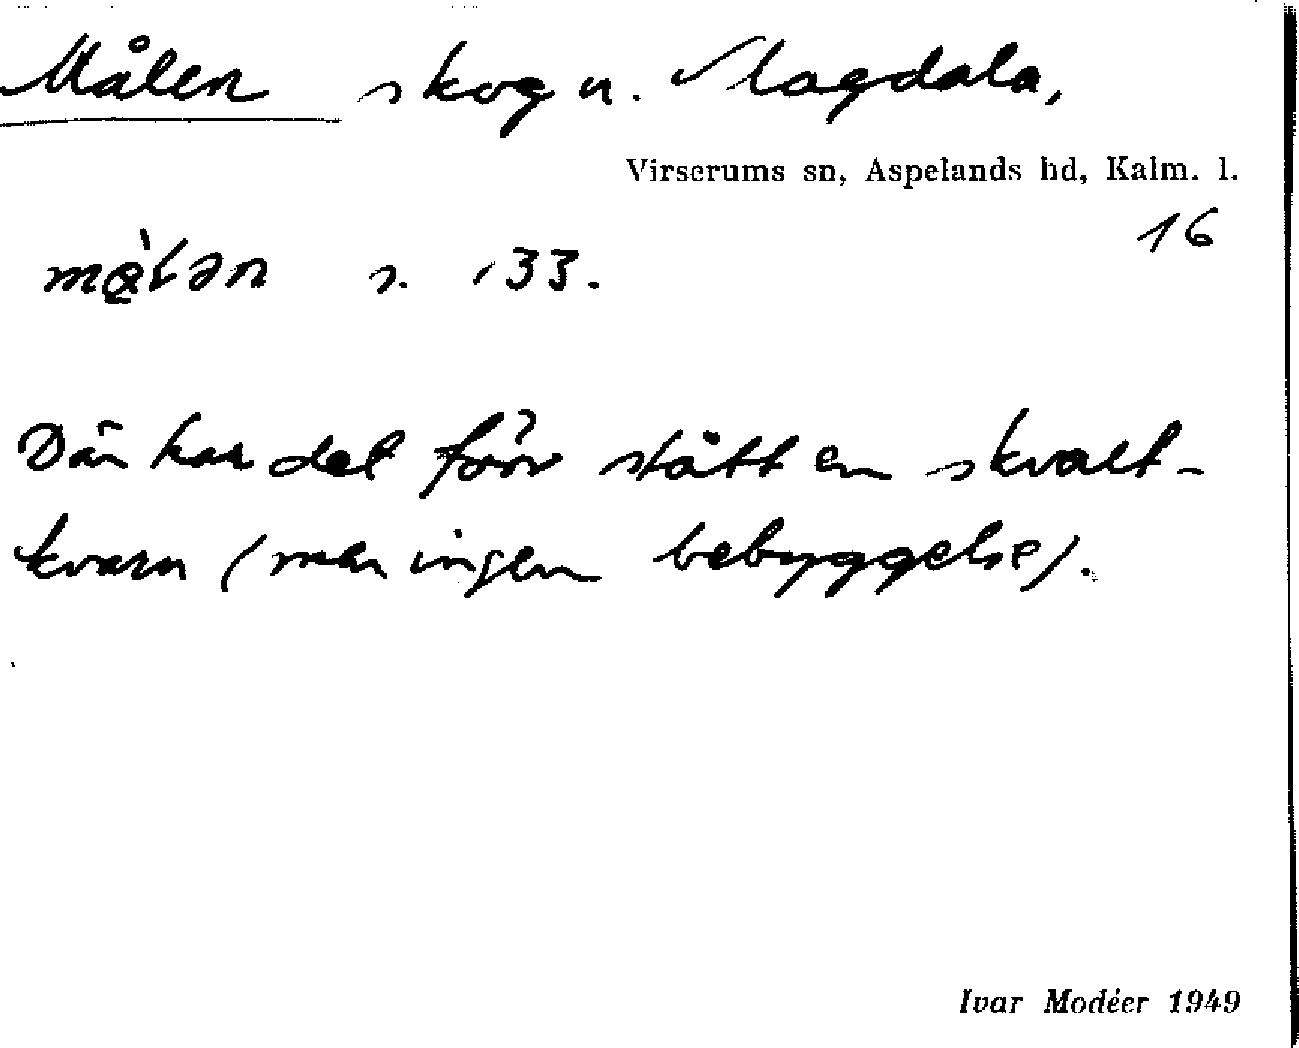 Målen skog u. Magdala,
Virserums sn, Aspelands hd, Kalm. l.
16
s. 133.
Där har det förr stått en skvalt-
kvarn (men ingen bebyggelse).
Ivar Modéer 1949